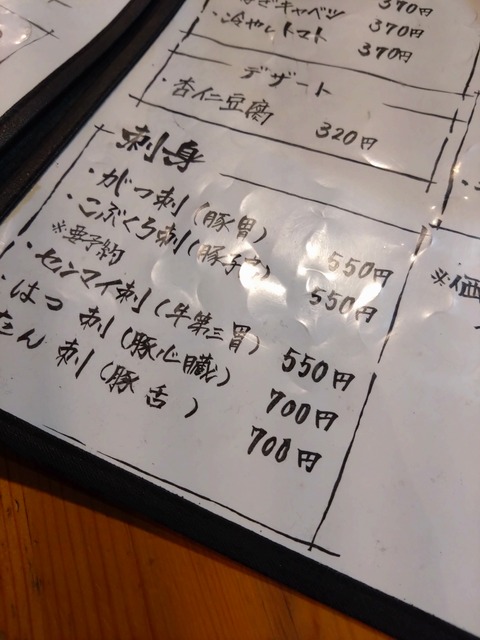 キャベツ 370円
・冷やしトマト 370円
370円
デザート
・杏仁豆腐 320円
刺身
・がつ刺(豚胃) 550円
・こぶくろ刺(豚子宮) 550円
※要予約
・センマイ刺(牛第三胃) 550円
・はつ刺(豚心臓) 700円
たん刺(豚舌) 700円
※価